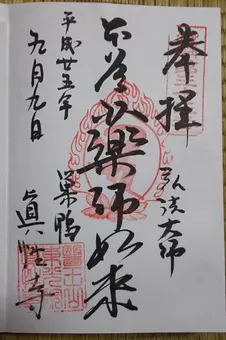 奉拝
弘法大師
藥師如来
平成廿五年
九月九日
巣鴨
眞性寺